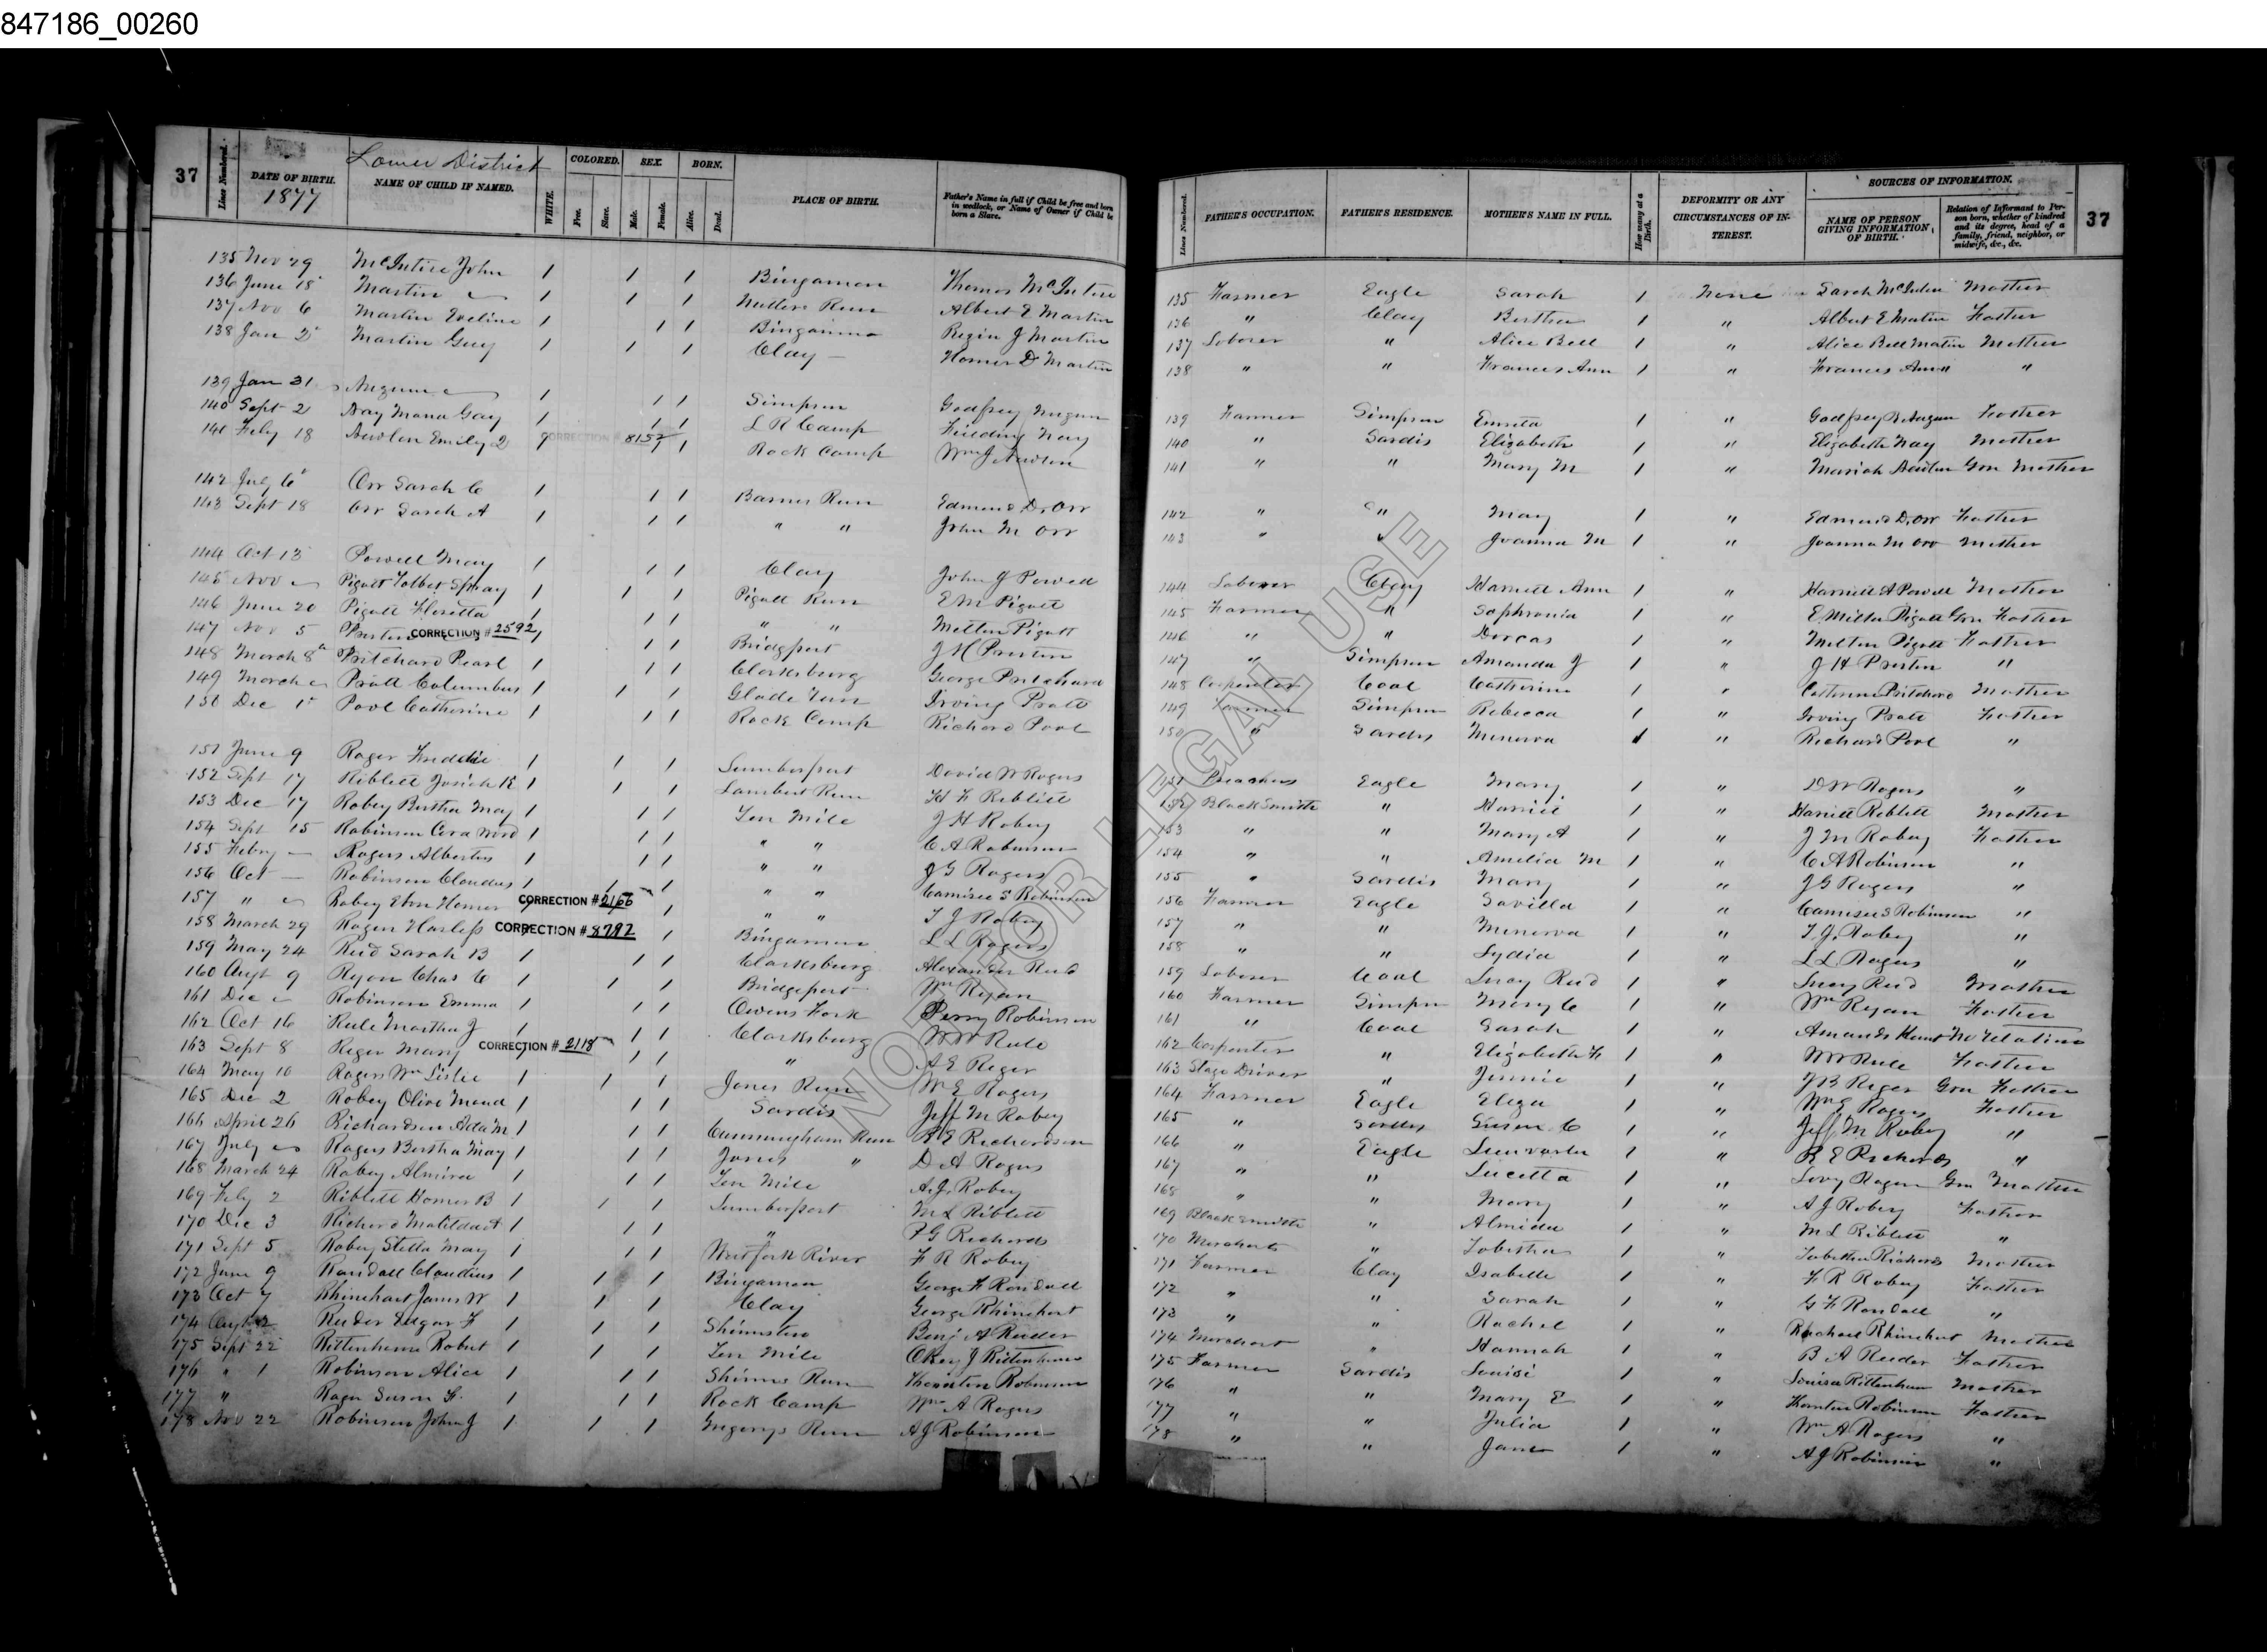 847186_00260
37
Lines Numbered.
DATE OF BIRTH.
1877
Lower District
NAME OF CHILD IF NAMED.
WHITE.
COLORED.
Free.
Slave.
SEX.
Male.
Female.
BORN.
Alive.
Dead.
PLACE OF BIRTH.
Father's Name in full if Child be free and born in wedlock, or Name of Owner if Child be born a Slave.
Lines Numbered.
FATHER'S OCCUPATION.
FATHER'S RESIDENCE.
MOTHER'S NAME IN FULL.
How many at a Birth.
DEFORMITY OR ANY CIRCUMSTANCES OF INTEREST.
SOURCES OF INFORMATION.
NAME OF PERSON GIVING INFORMATION OF BIRTH.
Relation of Informant to Person born, whether of kindred and its degree, head of a family, friend, neighbor, or midwife, &c., &c.
37
135 Nov 29 McIntire John 1 1 1 Bingamon Thomas McIntire 135 Farmer Eagle Sarah 1 None Sarah McIntire Mother
136 June 18 Martin 1 1 1 Nutters Run Albert E Martin 136 " Clay Bertha 1 Albert E Martin Father
137 Nov 6 Martin Eveline 1 1 1 Bingamon Rezin J Martin 137 Laborer " Alice Bell 1 " Alice Bell Martin Mother
138 Jan 2 Martin Guy 1 1 1 Clay Homer D Martin 138 " " Frances Ann 1 " Frances Ann " "
139 Jan 31 Nuzum 1 1 1 Simpson Godfrey Nuzum 139 Farmer Simpson 1 " Godfrey Nuzum Father
140 Sept 2 Nay Mana Gay 1 1 1 L R Camp Fielding Nay 140 " Sardis Elizabeth 1 " Elizabeth Nay Mother
141 Feby 18 Newlon Emily CORRECTION # 8152 1 Rock Camp Wm J Newlon 141 " " Mary M 1 " Mariah Newlon Gon Mother
142 July 6 Orr Sarah C 1 1 1 Barnes Run Edmund D. Orr 142 " " Mary 1 " Edmund D. Orr Father
143 Sept 18 Orr Sarah A 1 1 1 " " John M Orr 143 " " Joanna M 1 " Joanna M Orr Mother
144 Oct 13 Powell May 1 1 1 Clay John J Powell 144 Laborer Clay Harriett Ann 1 " Harriett A Powell Mother
145 Nov Pigott Tolbert 1 1 1 Pigott Run E M Pigott 145 Farmer " Sophronia 1 " E Milton Pigott Gon Father
146 June 20 Pigott Floretta 1 1 1 " " Milton Pigott 146 " " Dorcas 1 " Milton Pigott Father
147 Nov 5 CORRECTION # 2592 1 1 1 Bridgport J H Preston 147 " Simpson Amanda J 1 " J H Preston "
148 March 8 Pritchard Pearl 1 1 1 Clarksburg George Pritchard 148 Carpenter Coal Catherine 1 " Catherine Pritchard Mother
149 March Pratt Columbus 1 1 1 Glade Run Irving Pratt 149 Farmer Simpson Rebecca 1 " Irving Pratt Father
150 Dec 1 Pool Catherine 1 1 1 Rock Camp Richard Pool 150 " Sardis Minerva 1 " Richard Pool "
151 June 9 Roger Freddie 1 1 1 Lumberport David W Rogers 151 Preacher Eagle Mary 1 " D W Rogers "
152 Sept 17 Riblett Josiah R 1 1 1 Lambert Run H F Riblett 152 Black Smith " Harriet 1 " Harriett Riblett Mother
153 Dec 17 Robey Bertha May 1 1 1 Ten Mile J H Robey 153 " " Mary A 1 " J M Robey Father
154 Sept 15 Robinson Cora 1 1 1 " " C A Robinson 154 " " Amelia M 1 " C A Robinson "
155 Feby Rogers Albertus 1 1 1 " " J G Rogers 155 " Sardis Mary 1 " J G Rogers "
156 Oct Robinson Claudus 1 1 1 " " Camisee S Robinson 156 Farmer Eagle Savilla 1 " Camisee S Robinson "
157 " Robey Homer CORRECTION # 2166 1 " " T J Robey 157 " " Minerva 1 " T. J. Robey "
158 March 29 Roger Harless CORRECTION # 8292 1 Bingamon L L Rogers 158 " " Lydia 1 " L L Rogers "
159 May 24 Reid Sarah B 1 1 1 Clarksburg Alexander Reid 159 Laborer Coal Lucy Reid 1 " Lucy Reid Mother
160 Augt 9 Ryan Chas C 1 1 1 Bridgeport Wm Ryan 160 Farmer Simpson Mary C 1 " Wm Ryan Father
161 Dec Robinson Emma 1 1 1 Owens Fork Perry Robinson 161 " Coal Sarah 1 " Amanda no relation
162 Oct 16 Rule Martha J 1 1 1 Clarksburg W W Rule 162 Carpenter " Elizabeth F 1 " W W Rule Father
163 Sept 8 Reger Mary CORRECTION # 2118 1 1 " A E Reger 163 Stage Driver " Jennie 1 " J B Reger Gon Father
164 May 10 Rogers Wm Lislie 1 1 1 Jones Run Wm E Rogers 164 Farmer Eagle Eliza 1 " Wm E Rogers Father
165 Dec 2 Robey Olive Maud 1 1 1 Sardis Jeff M Robey 165 " Sardis Susan C 1 " Jeff M Robey "
166 April 26 Richardson Ada M 1 1 1 Cunningham Run R E Richardson 166 " Eagle 1 " R E Richards "
167 July Rogers Bertha May 1 1 1 Jones " D A Rogers 167 " " Lucetta 1 " Levy Rogers Gon Mother
168 March 24 Robey Almira 1 1 1 Ten Mile A. J. Robey 168 " " Mary 1 " A J Robey Father
169 Feby 2 Riblett Homer B 1 1 1 Lumberport M L Riblett 169 Black Smith " Almida 1 " M L Riblett "
170 Dec 3 Richard Matilda A 1 1 1 " P G Richards 170 Merchant " Tobitha 1 " Tobitha Richards Mother
171 Sept 5 Robey Stella May 1 1 1 West fork River F R Robey 171 Farmer Clay Isabelle 1 " F R Robey Father
172 June 9 Randall Claudius 1 1 1 Bingamon George F Randall 172 " " Sarah 1 " G F Randall "
173 Oct 7 Rhinehart James W 1 1 1 Clay George Rhinehart 173 " " Rachel 1 " Rachael Rhinehart Mother
174 Augt 12 Reeder Edgar F 1 1 1 Shinnston Benj A Reeder 174 Merchant " Hannah 1 " B A Reeder Father
175 Sept 22 Rittenhouse Robert 1 1 1 Ten Mile Okey J Rittenhouse 175 Farmer Sardis Louisi 1 " Louisa Rittenhouse Mother
176 " 1 Robinson Alice 1 1 1 Shinns Run Thornton Robinson 176 " " Mary E 1 " Thornton Robinson Father
177 " Roger Susan 1 1 1 Rock Camp Wm A Rogers 177 " " Julia 1 " Wm A Rogers "
178 Nov 22 Robinson John J 1 1 1 Gregorys Run A J Robinson 178 " " Jane 1 " A J Robinson "
NOT FOR LEGAL USE